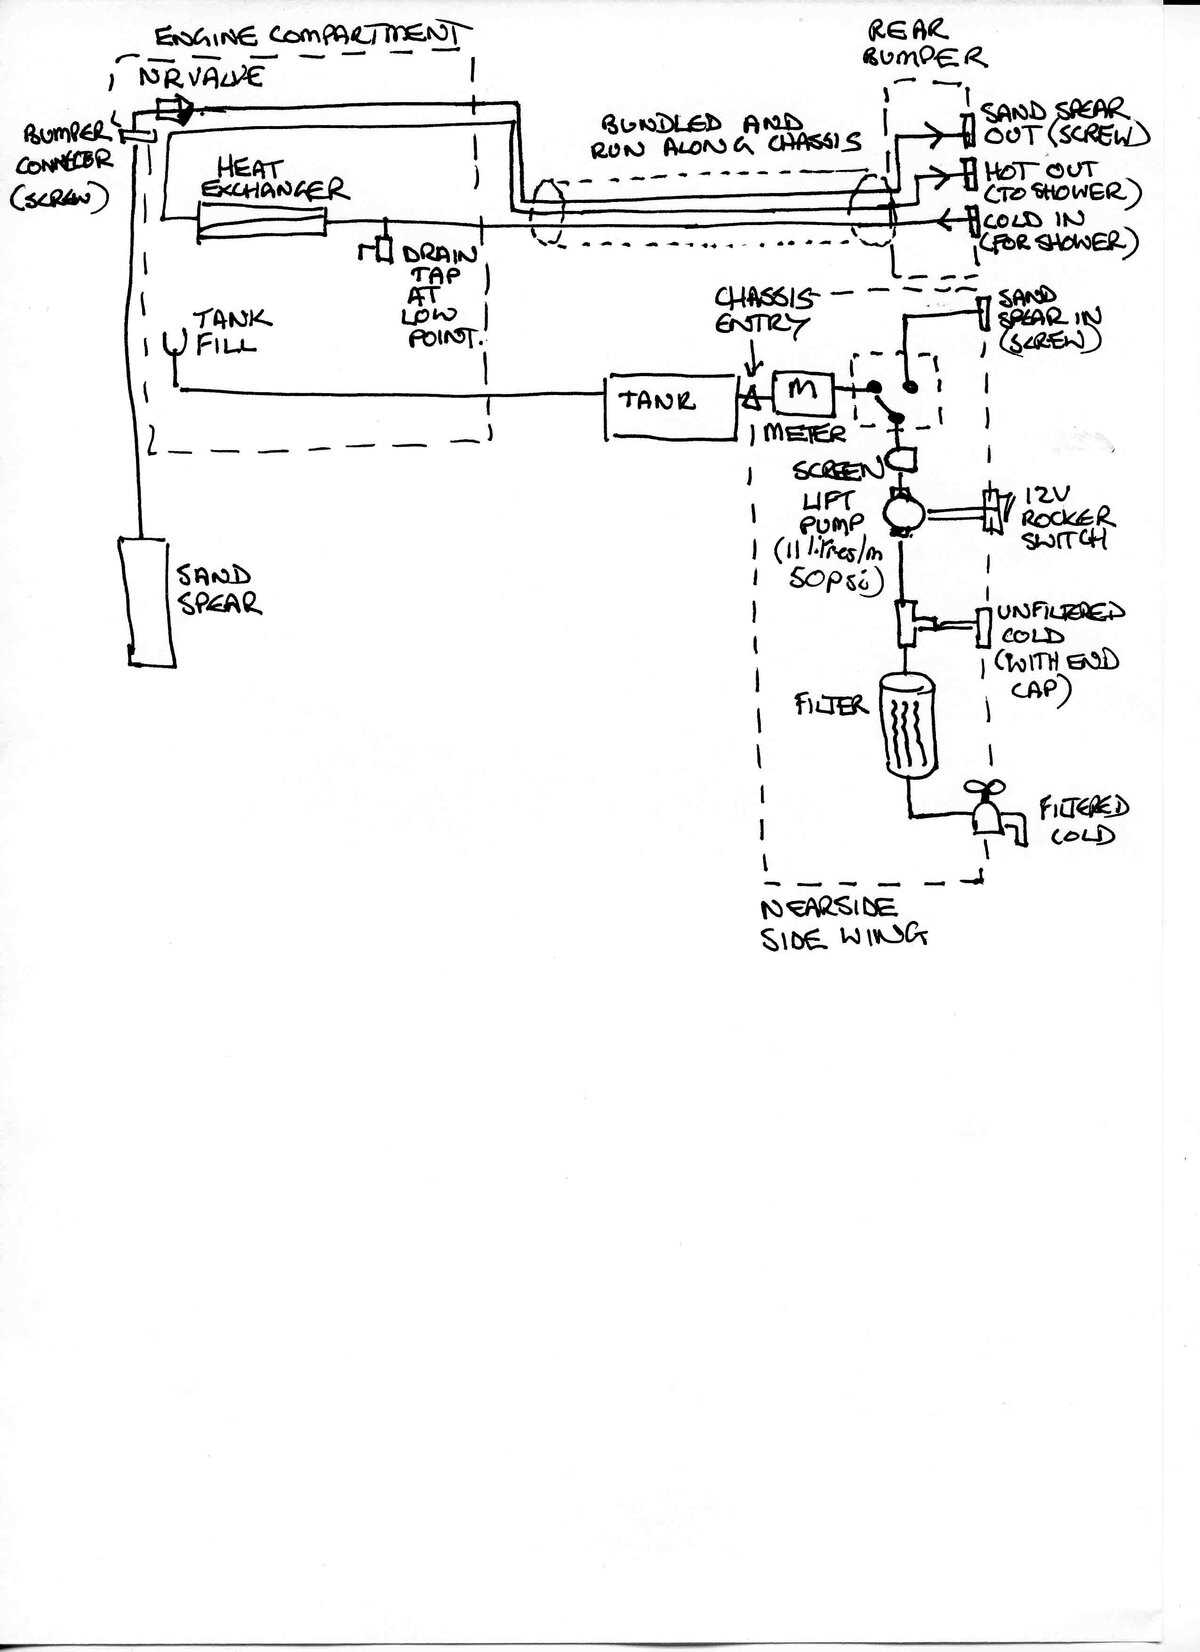 ENGINE COMPARTMENT
NR VALVE
BUMPER
CONNECTER
(SCREW)
HEAT
EXCHANGER
DRAIN
TAP
AT
LOW
POINT.
TANK
FILL
SAND
SPEAR
BUNDLED AND
RUN ALONG CHASSIS
REAR
BUMPER
SAND SPEAR
OUT (SCREW)
HOT OUT
(TO SHOWER)
COLD IN
(FOR SHOWER)
CHASSIS
ENTRY
SAND
SPEAR IN
(SCREW)
TANK
M
METER
SCREEN
LIFT
PUMP
(11 litres/m
50psi)
12V
ROCKER
SWITCH
UNFILTERED
COLD
(WITH END
CAP)
FILTER
FILTERED
COLD
NEARSIDE
SIDE WING